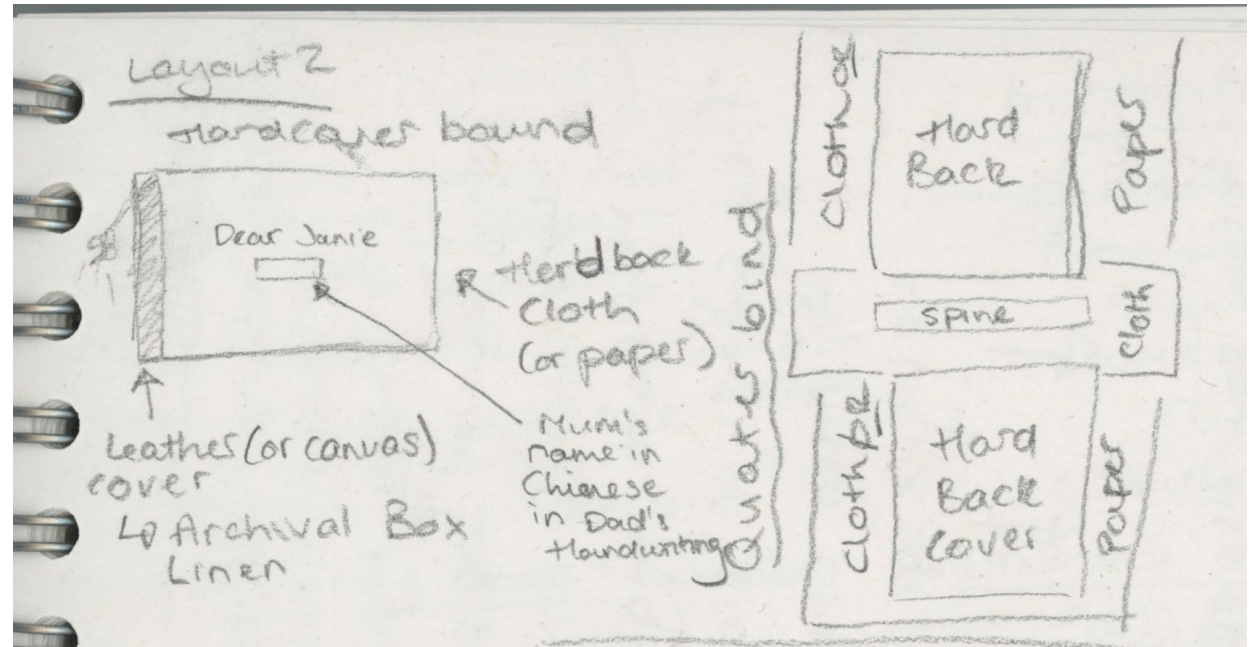 Layout 2
Hardcover bound
Dear Janie
Hardback
Cloth
(or paper)
Leather (or canvas)
cover
↳ Archival Box
Linen
Mum's
name in
Chinese
in Dad's
Handwriting
Quater bind
Cloth or
Hard
Back
Paper
spine
Cloth
Cloth
Hard
Back
cover
Paper